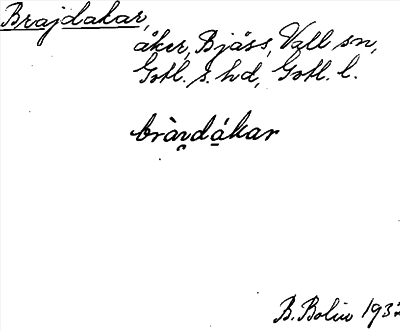 Brajdakar,
åker, Bjäss, Vall sn,
Gotl. s. hd, Gotl. l.
bràrdákar
B. Bolin 1932